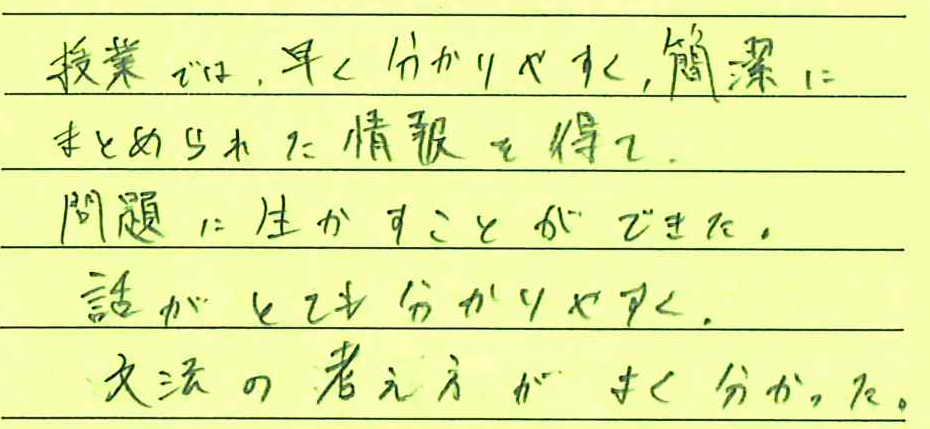 授業では、早く分かりやすく、簡潔に
まとめられた情報を得て、
問題に生かすことができた。
話がとても分かりやすく、
文法の考え方がよく分かった。